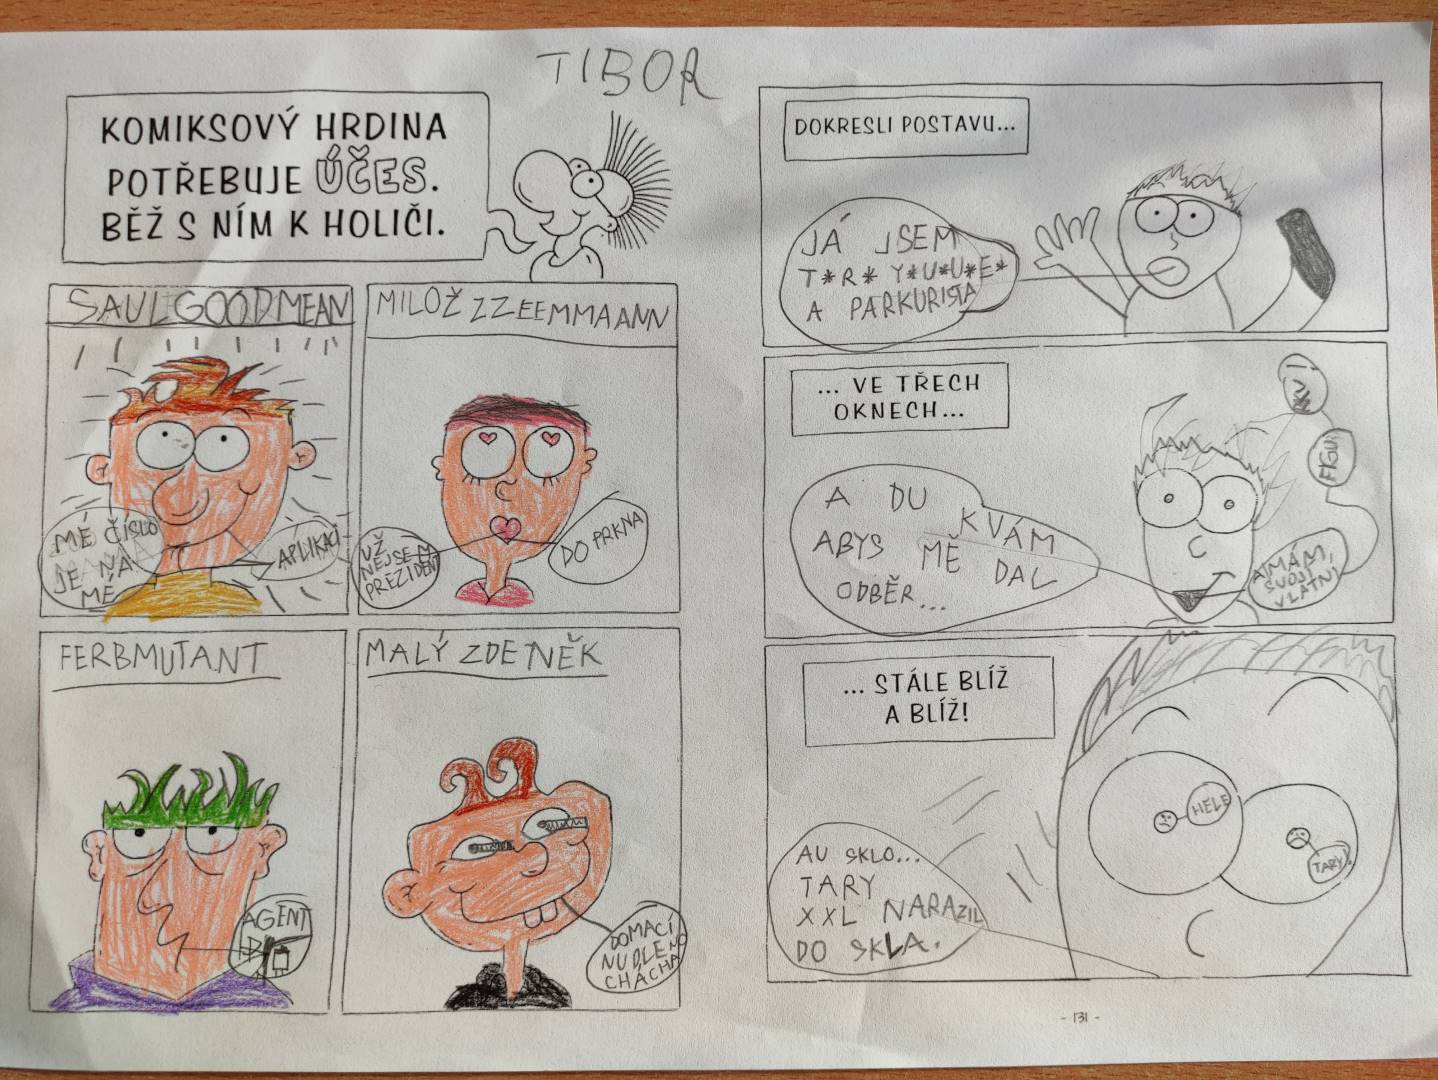 TIBOR
KOMIKSOVÝ HRDINA
POTŘEBUJE ÚČES.
BĚŽ S NÍM K HOLIČI.
SAUL GOODMEAN
MÉ ČÍSLO
JE NA
MÉ
APLIKACI
MILOŽ ZZEEMMAANN
UŽ
NEJSEM
PREZIDENT
DO PRKNA
FERBMUTANT
AGENT
MALÝ ZDENĚK
DOMACÍ
NUDLE NO
CHÁCHA
DOKRESLI POSTAVU...
JÁ JSEM
T*R*Y*U*U*E*
A PARKURISTA
... VE TŘECH
OKNECH...
A DU
K VÁM
ABYS MĚ DAL
ODBĚR...
A MÁM
SVOJI
VLATNI
FIGU
... STÁLE BLÍŽ
A BLÍŽ!
HELE
TARY!
AU SKLO...
TARY
XXL NARAZIL
DO SKLA.
- 131 -